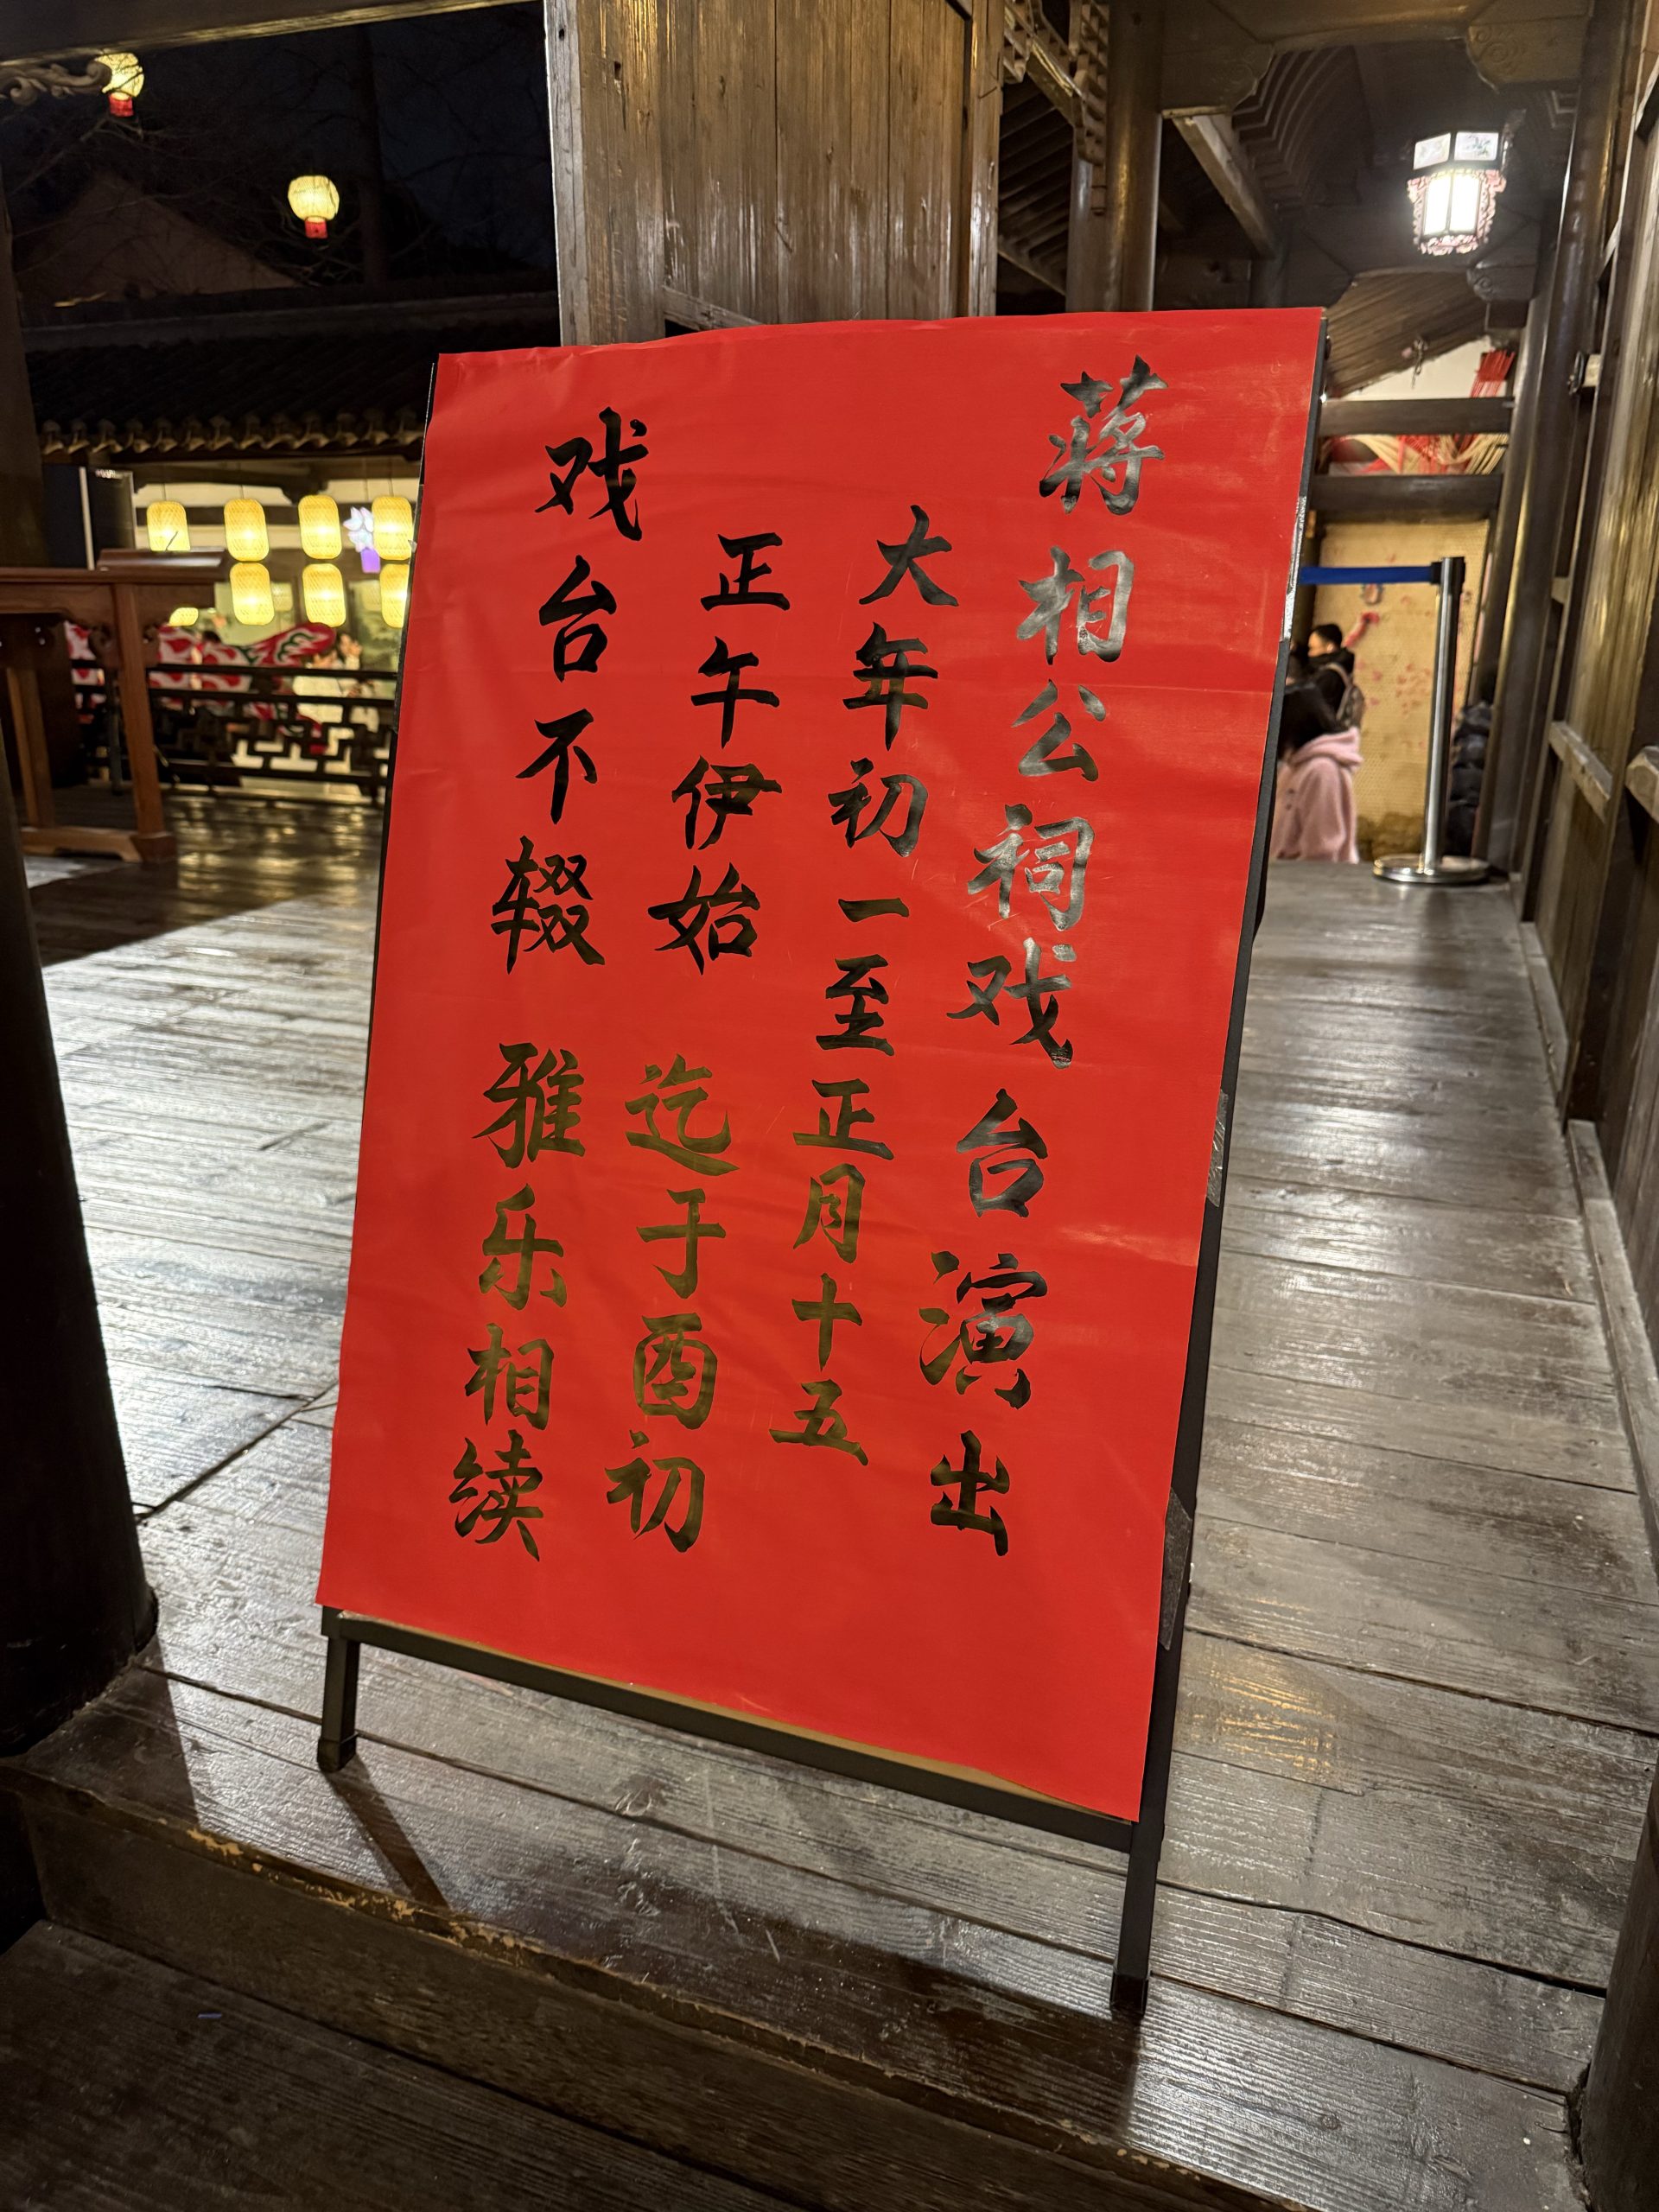 蒋相公祠戏台演出
大年初一至正月十五
正午伊始 迄于酉初
戏台不辍 雅乐相续